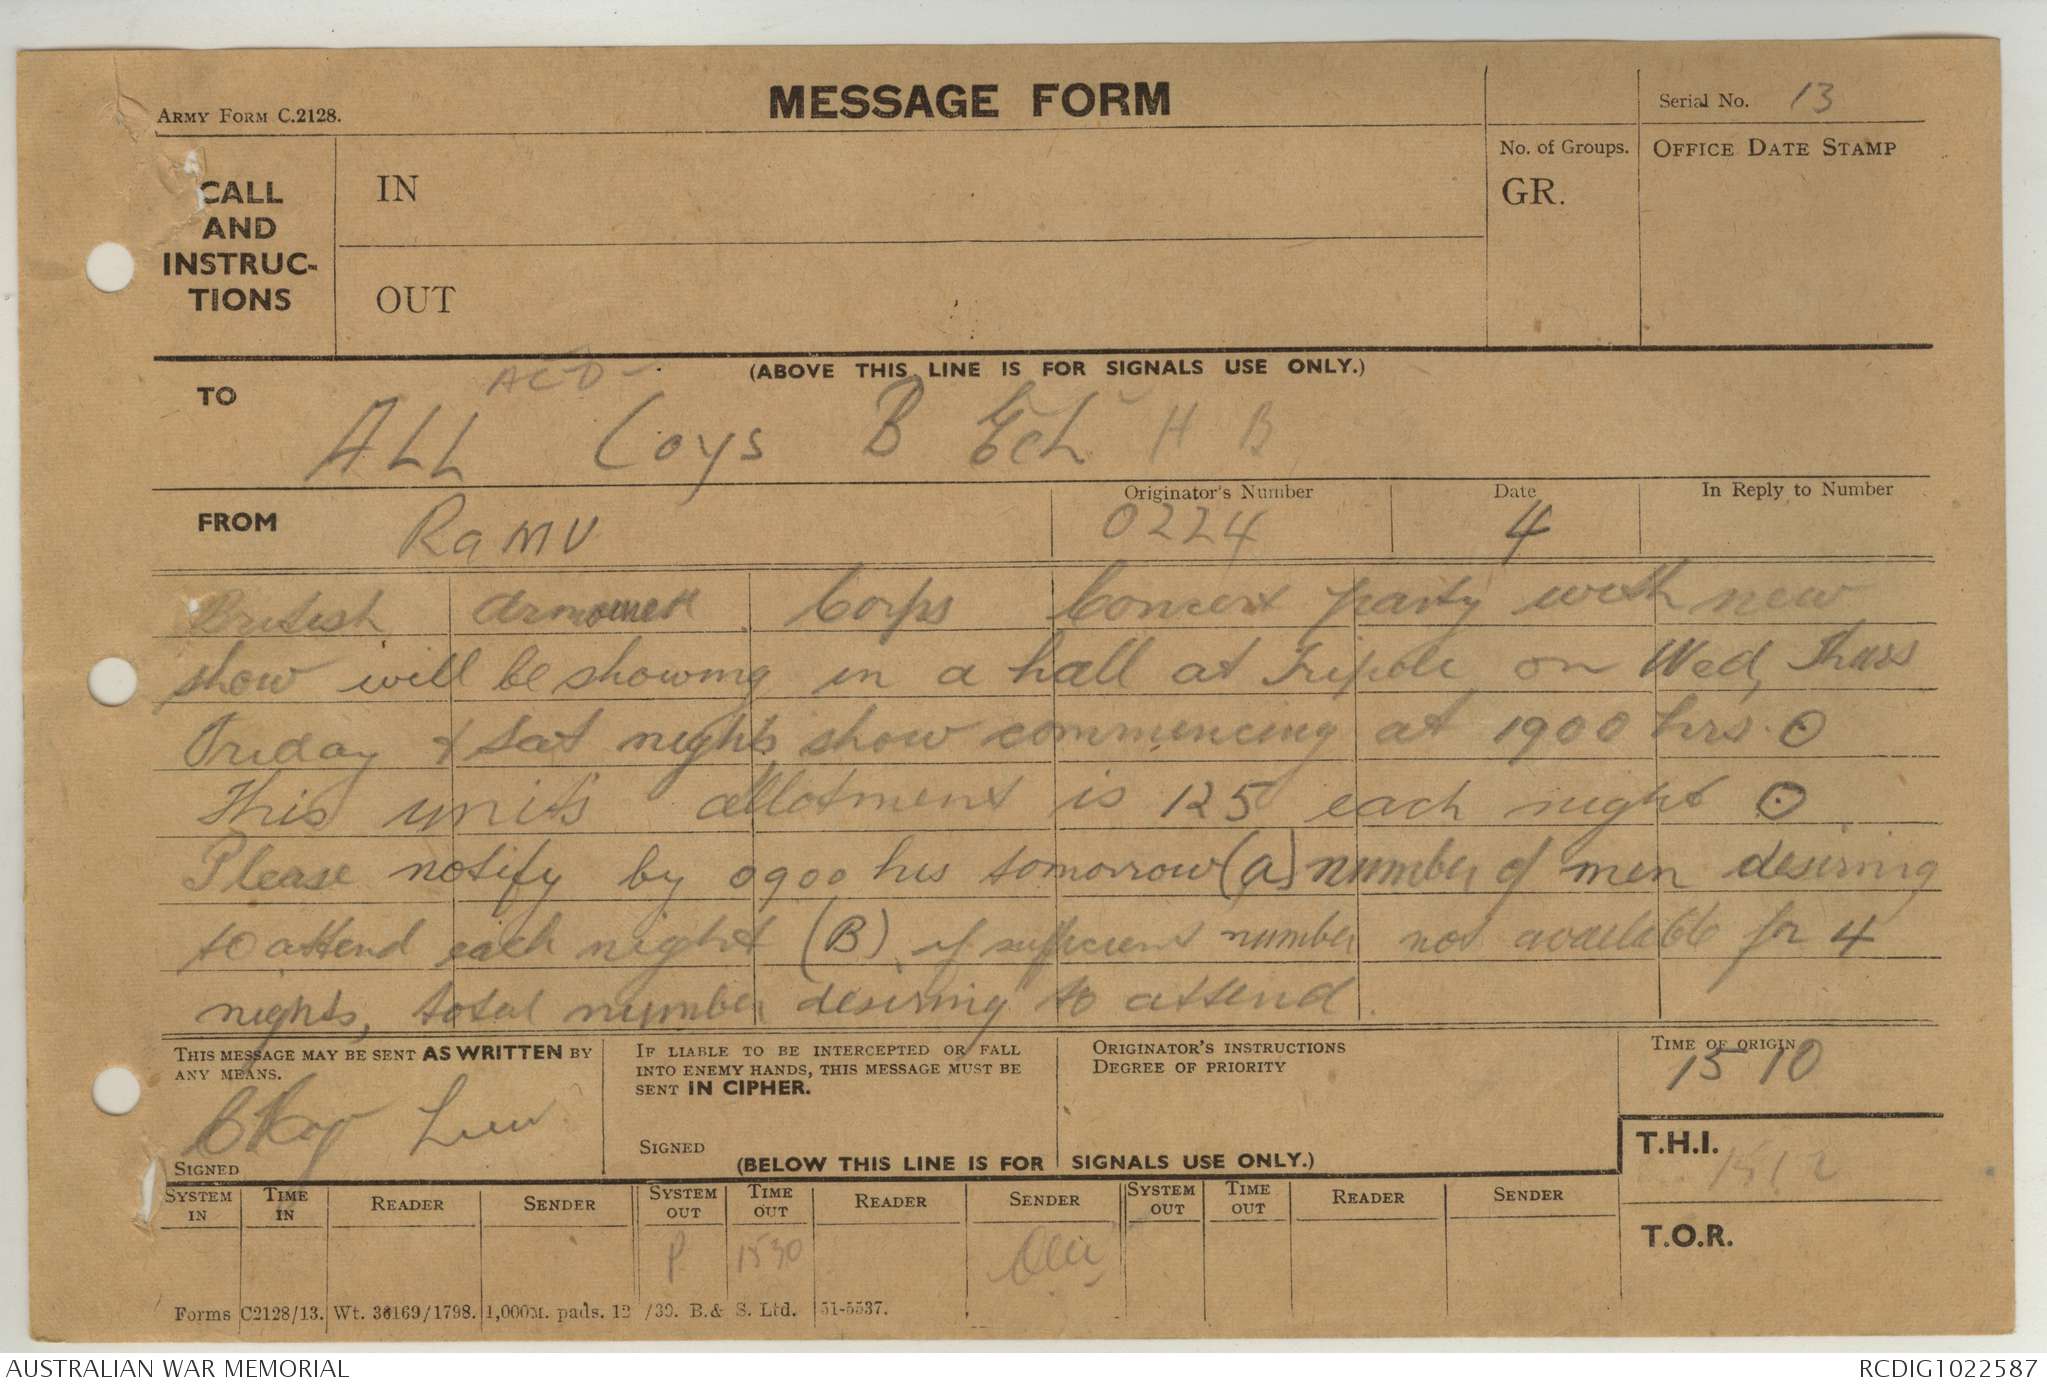 MESSAGE FORM
ARMY FORM C.2128.
Serial No. 13
CALL
AND
INSTRUC-
TIONS
IN
OUT
No. of Groups.
GR.
OFFICE DATE STAMP
(ABOVE THIS LINE IS FOR SIGNALS USE ONLY.)
TO
ACD
ALL Coys B Ech H B
FROM RaMU
Originator's Number 0224
Date 4
In Reply to Number
British Corps Concert party with new
show will be showing in a hall at Tripoli on Wed, Thurs
Friday & Sat nights show commencing at 1900 hrs.
This units allotment is 125 each night
Please notify by 0900 hrs tomorrow (a) number of men desiring
to attend each night (B) if sufficient number not available for 4
nights, total number desiring to attend.
THIS MESSAGE MAY BE SENT AS WRITTEN BY
ANY MEANS.
SIGNED
IF LIABLE TO BE INTERCEPTED OR FALL
INTO ENEMY HANDS, THIS MESSAGE MUST BE
SENT IN CIPHER.
SIGNED
ORIGINATOR'S INSTRUCTIONS
DEGREE OF PRIORITY
TIME OF ORIGIN
1510
T.H.I.
1512
T.O.R.
(BELOW THIS LINE IS FOR SIGNALS USE ONLY.)
SYSTEM IN TIME IN READER SENDER SYSTEM OUT TIME OUT READER SENDER SYSTEM OUT TIME OUT READER SENDER
P 1530
Forms C2128/13. Wt. 36169/1798. 1,000M. pads. 12/39. B. & S. Ltd. 51-5537.
AUSTRALIAN WAR MEMORIAL
RCDIG1022587